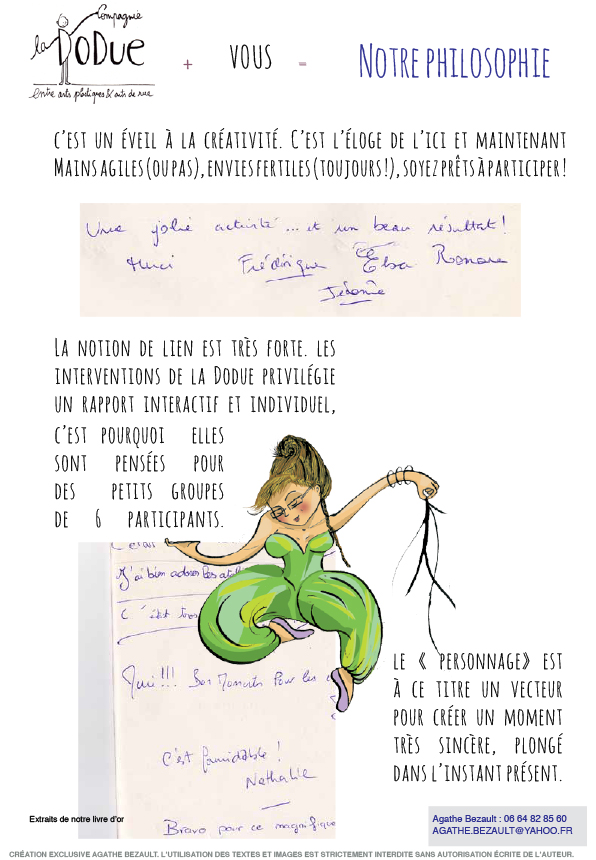 Compagnie
la Dodue
entre arts plastiques & arts de rue
+ VOUS = NOTRE PHILOSOPHIE
C'EST UN ÉVEIL À LA CRÉATIVITÉ. C'EST L'ÉLOGE DE L'ICI ET MAINTENANT
MAINS AGILES (OU PAS), ENVIES FERTILES (TOUJOURS !), SOYEZ PRÊTS À PARTICIPER !
Une jolie activité ... et un beau résultat !
Merci Frédérique Elsa Romane
Jérôme
LA NOTION DE LIEN EST TRÈS FORTE. LES
INTERVENTIONS DE LA DODUE PRIVILÉGIE
UN RAPPORT INTERACTIF ET INDIVIDUEL,
C'EST POURQUOI ELLES
SONT PENSÉES POUR
DES PETITS GROUPES
DE 6 PARTICIPANTS.
C'était
J'ai bien adorer les
C'était
!!! Bons Moments Pour les
C'est formidable !
Nathalie
Bravo pour ce magnifique
LE « PERSONNAGE» EST
À CE TITRE UN VECTEUR
POUR CRÉER UN MOMENT
TRÈS SINCÈRE, PLONGÉ
DANS L'INSTANT PRÉSENT.
Extraits de notre livre d'or
Agathe Bezault : 06 64 82 85 60
AGATHE.BEZAULT@YAHOO.FR
CRÉATION EXCLUSIVE AGATHE BEZAULT. L'UTILISATION DES TEXTES ET IMAGES EST STRICTEMENT INTERDITE SANS AUTORISATION ÉCRITE DE L'AUTEUR.